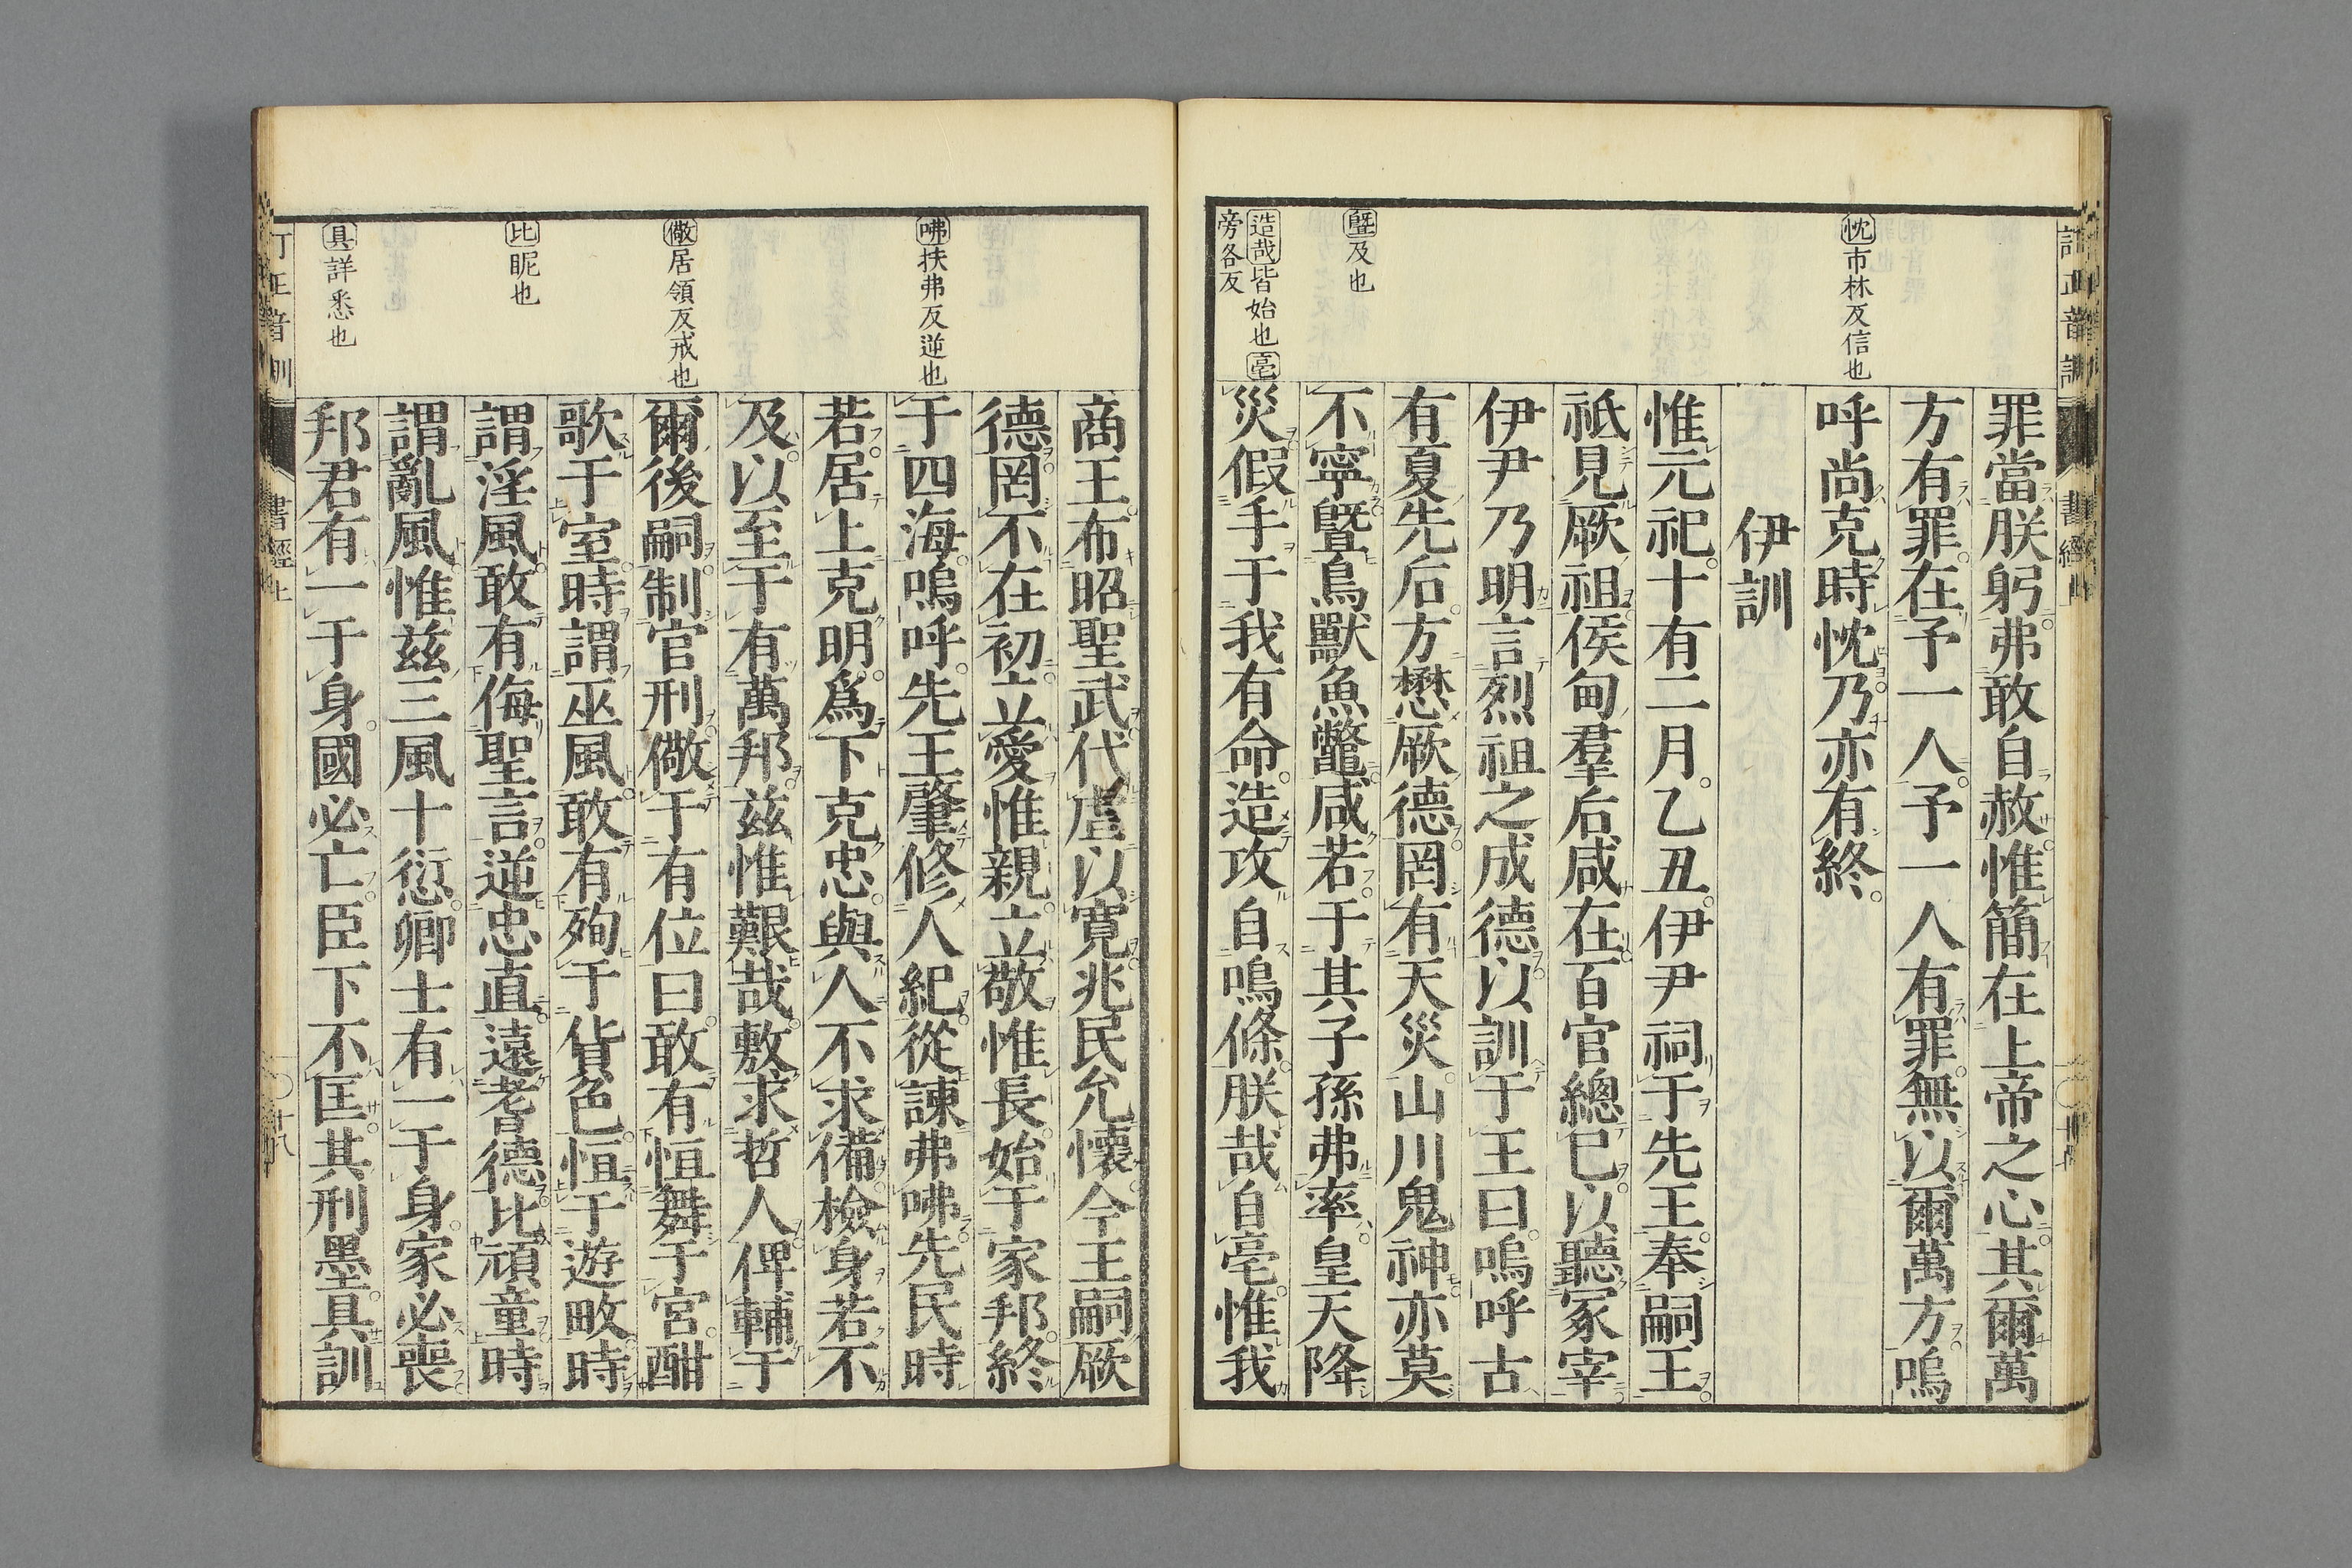 忱市林反信也
曁及也
造哉皆始也亳
旁各反
罪當朕躬弗敢自赦惟簡在上帝之心其爾萬
方有罪在予一人予一人有罪無以爾萬方嗚
呼尚克時忱乃亦有終
伊訓
惟元祀十有二月乙丑伊尹祠于先王奉嗣王
祇見厥祖侯甸羣后咸在百官總已以聽冢宰
伊尹乃明言烈祖之成德以訓于王曰嗚呼古
有夏先后方懋厥德罔有天災山川鬼神亦莫
不寧曁鳥獸魚鼈咸若于其子孫弗率皇天降
災假手于我有命造攻自鳴條朕哉自亳惟我
咈扶弗反逆也
儆居領反戒也
比昵也
具詳悉也
商王布昭聖武代虐以寬兆民允懷今王嗣厥
德罔不在初立愛惟親立敬惟長始于家邦終
于四海嗚呼先王肇修人紀從諫弗咈先民時
若居上克明爲下克忠與人不求備檢身若不
及以至于有萬邦兹惟艱哉敷求哲人俾輔于
爾後嗣制官刑儆于有位曰敢有恒舞于宮酣
歌于室時謂巫風敢有殉于貨色恒于遊畋時
謂淫風敢有侮聖言逆忠直遠耆德比頑童時
謂亂風惟兹三風十愆卿士有一于身家必喪
邦君有一于身國必亡臣下不匡其刑墨具訓
書經上
十八